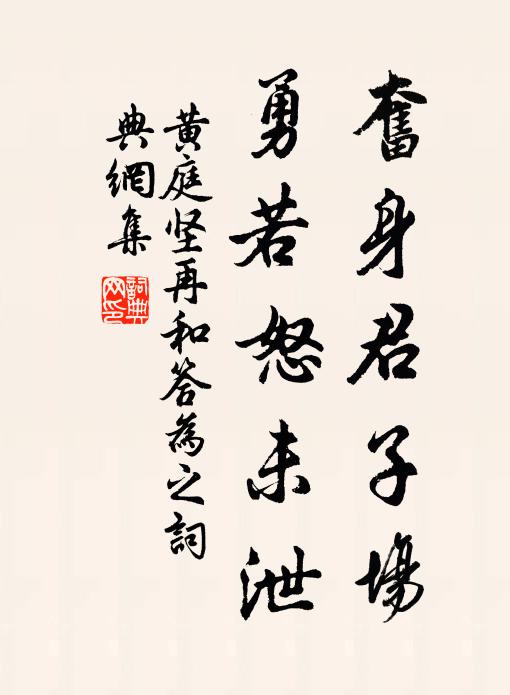 奮身君子場
勇若怒未泄
黄庭坚再和答為之詞
典網集
詞典
网印